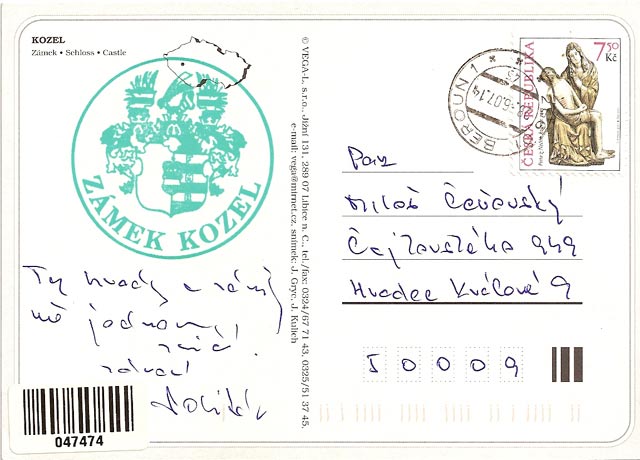 KOZEL
Zámek • Schloss • Castle
ZÁMEK KOZEL
Ty hrady a zámky
mě jednou
zničí!
zdraví
047474
© VEGA-L, s.r.o., Jižní 131, 289 07 Libice n. C., tel./fax: 0324/67 71 43, 0325/51 37 45,
e-mail: vega@mirnet.cz, snímek: J. Gryc, J. Kulich
BEROUN 1
-6.07.14
7,50
Kč
ČESKÁ REPUBLIKA
Pan
Miloš Červavský
Čajkovského 949
Hradec Králové 9
50009